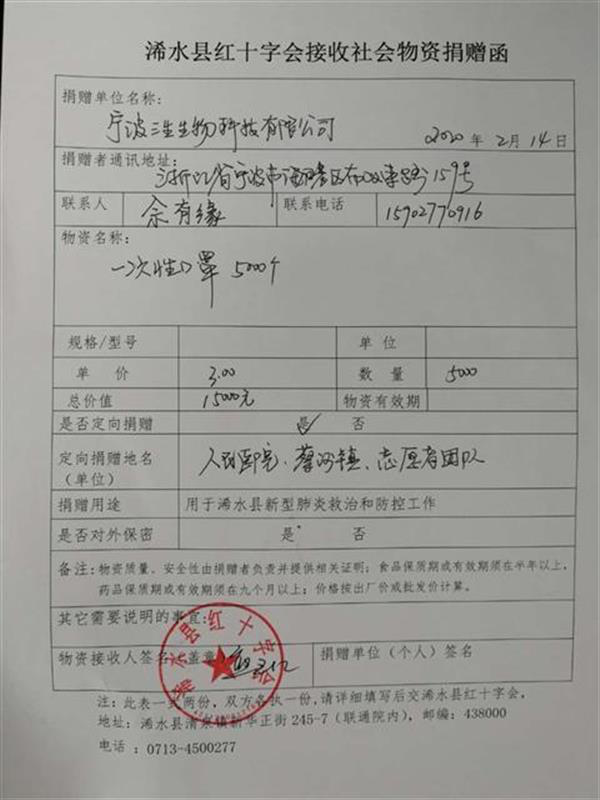 浠水县红十字会接收社会物资捐赠函
捐赠单位名称:
宁波三生生物科技有限公司
2020年2月14日
捐赠者通讯地址:
浙江省宁波市海曙区布政东路159号
联系人 余有缘 联系电话 15902770916
物资名称:
一次性口罩 5000个
规格/型号 单位
单价 3.00 数量 5000
总价值 15000元 物资有效期
是否定向捐赠 是✓ 否
定向捐赠地名 人民医院、蔡河镇、志愿者团队
(单位)
捐赠用途 用于浠水县新型肺炎救治和防控工作
是否对外保密 是 否
备注:物资质量、安全性由捐赠者负责并提供相关证明;食品保质期或有效期须在半年以上,
药品保质期或有效期须在九个月以上;价格按出厂价或批发价计算。
其它需要说明的事宜:
物资接收人签名 盖章 捐赠单位(个人)签名
浠水县红十字会
注:此表一式两份,双方各执一份,请详细填写后交浠水县红十字会。
地址:浠水县清泉镇新华正街245-7(联通院内),邮编:438000
电话:0713-4500277